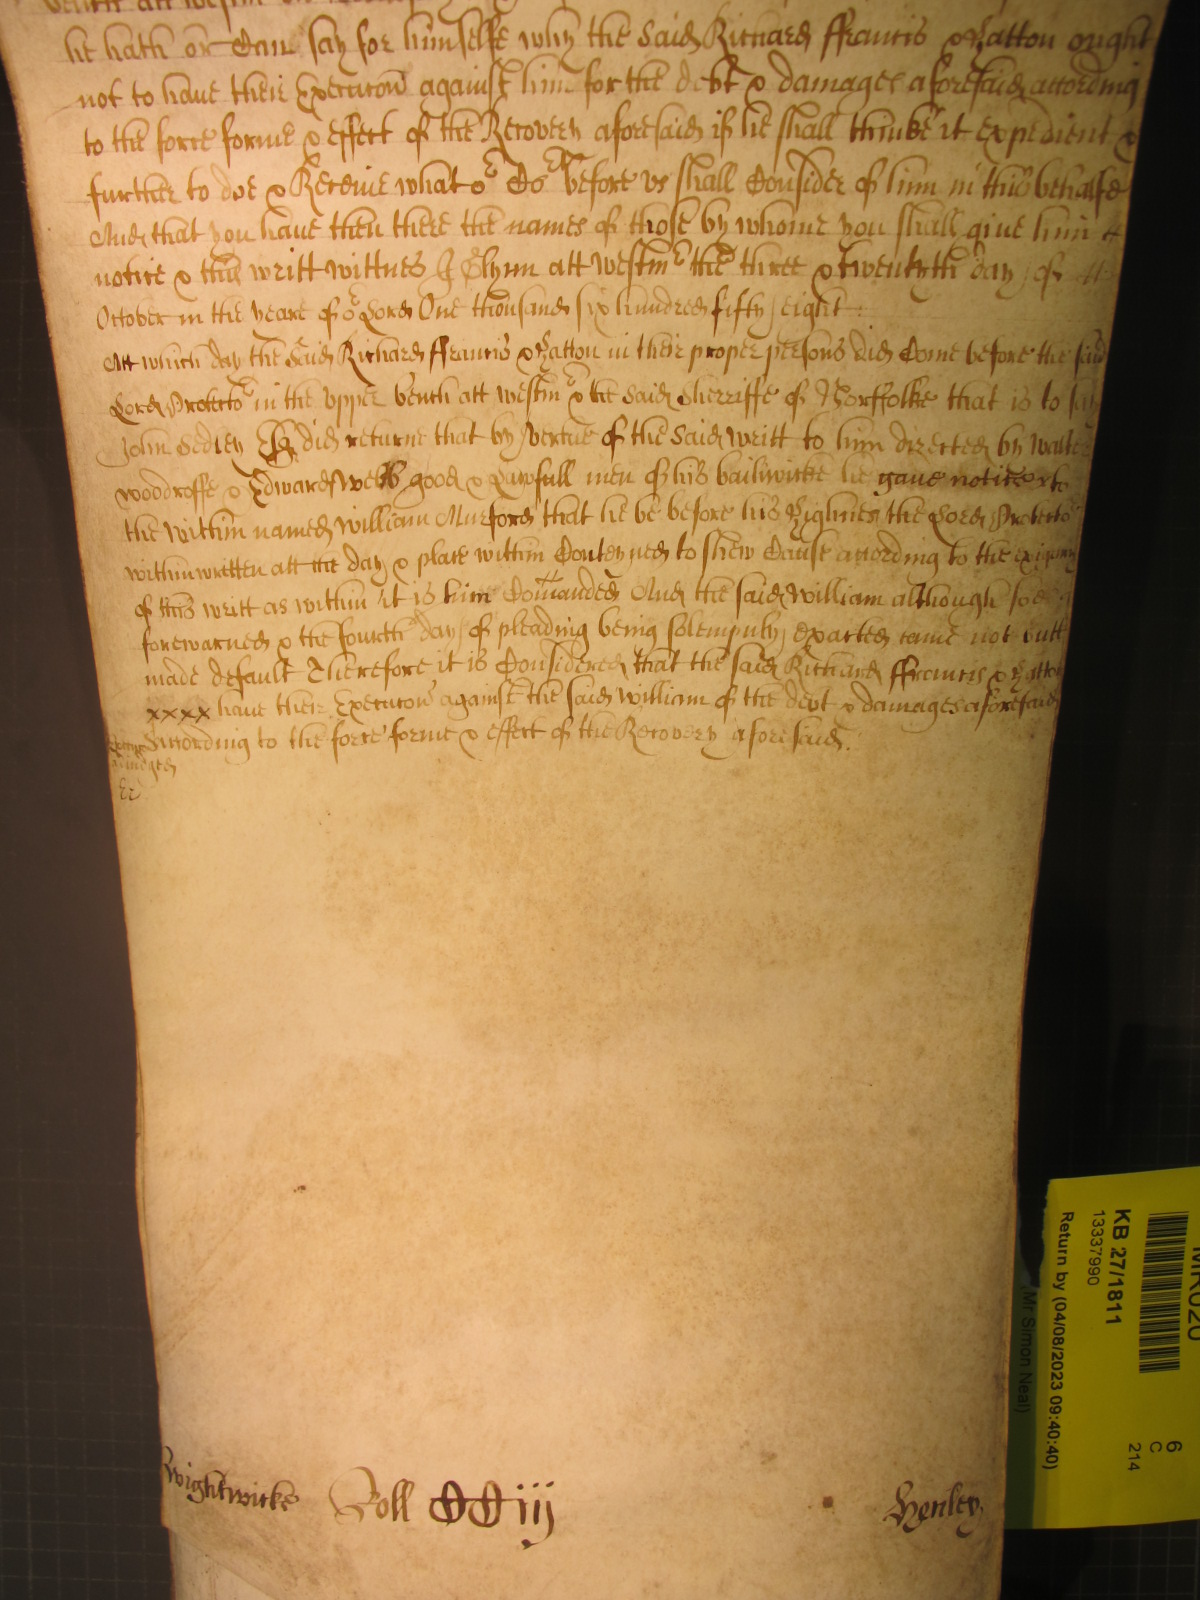 he hath or Cann say for himselfe why the said Richard ffrancis & Hatton ought
not to have their Execucon against him for the debt & damages aforesaid according
to the force forme & effect of the Recovery aforesaid if he shall thinke it expedient &
further to doe & Receive what or Cort before us shall Consider of him in this behalfe
And that you have then there the names of those by whome you shall give him
notice & this writt wittnes J Glynn att Westmr the three & twentyth day of
October in the yeare of or Lord One thousand six hundred fifty eight
Att which day the said Richard ffrancis & Hatton in their proper persons did Come before the said
Lord Protector in the upper bench att Westmr & the said Sherriffe of Norffolke that is to say
John Sedley Esqr did returne that by vertue of the said writt to him directed by Walter
Woodroffe & Edward Webb good & Lawfull men of his bailiwicke he gave notice to
the within named William Murford that he be before his Highnes the Lord Protector
within written att the day & place within Conteyned to shew Cause according to the exigency
of this writt as within it is him Comanded And the said William although soe
forewarned & the fourth day of pleading being solempnly exacted came not butt
made default Therefore it is Considered that the said Richard ffrancis & Hatton
xxxx have their Execucon against the said William of the debt & damages aforesaid
according to the force forme & effect of the Recovery aforesaid.
Wightwicke Roll CCiij Henley
MR020
6
C
214
KB 27/1811
13337990
Return by (04/08/2023 09:40:40)
(Mr Simon Neal)